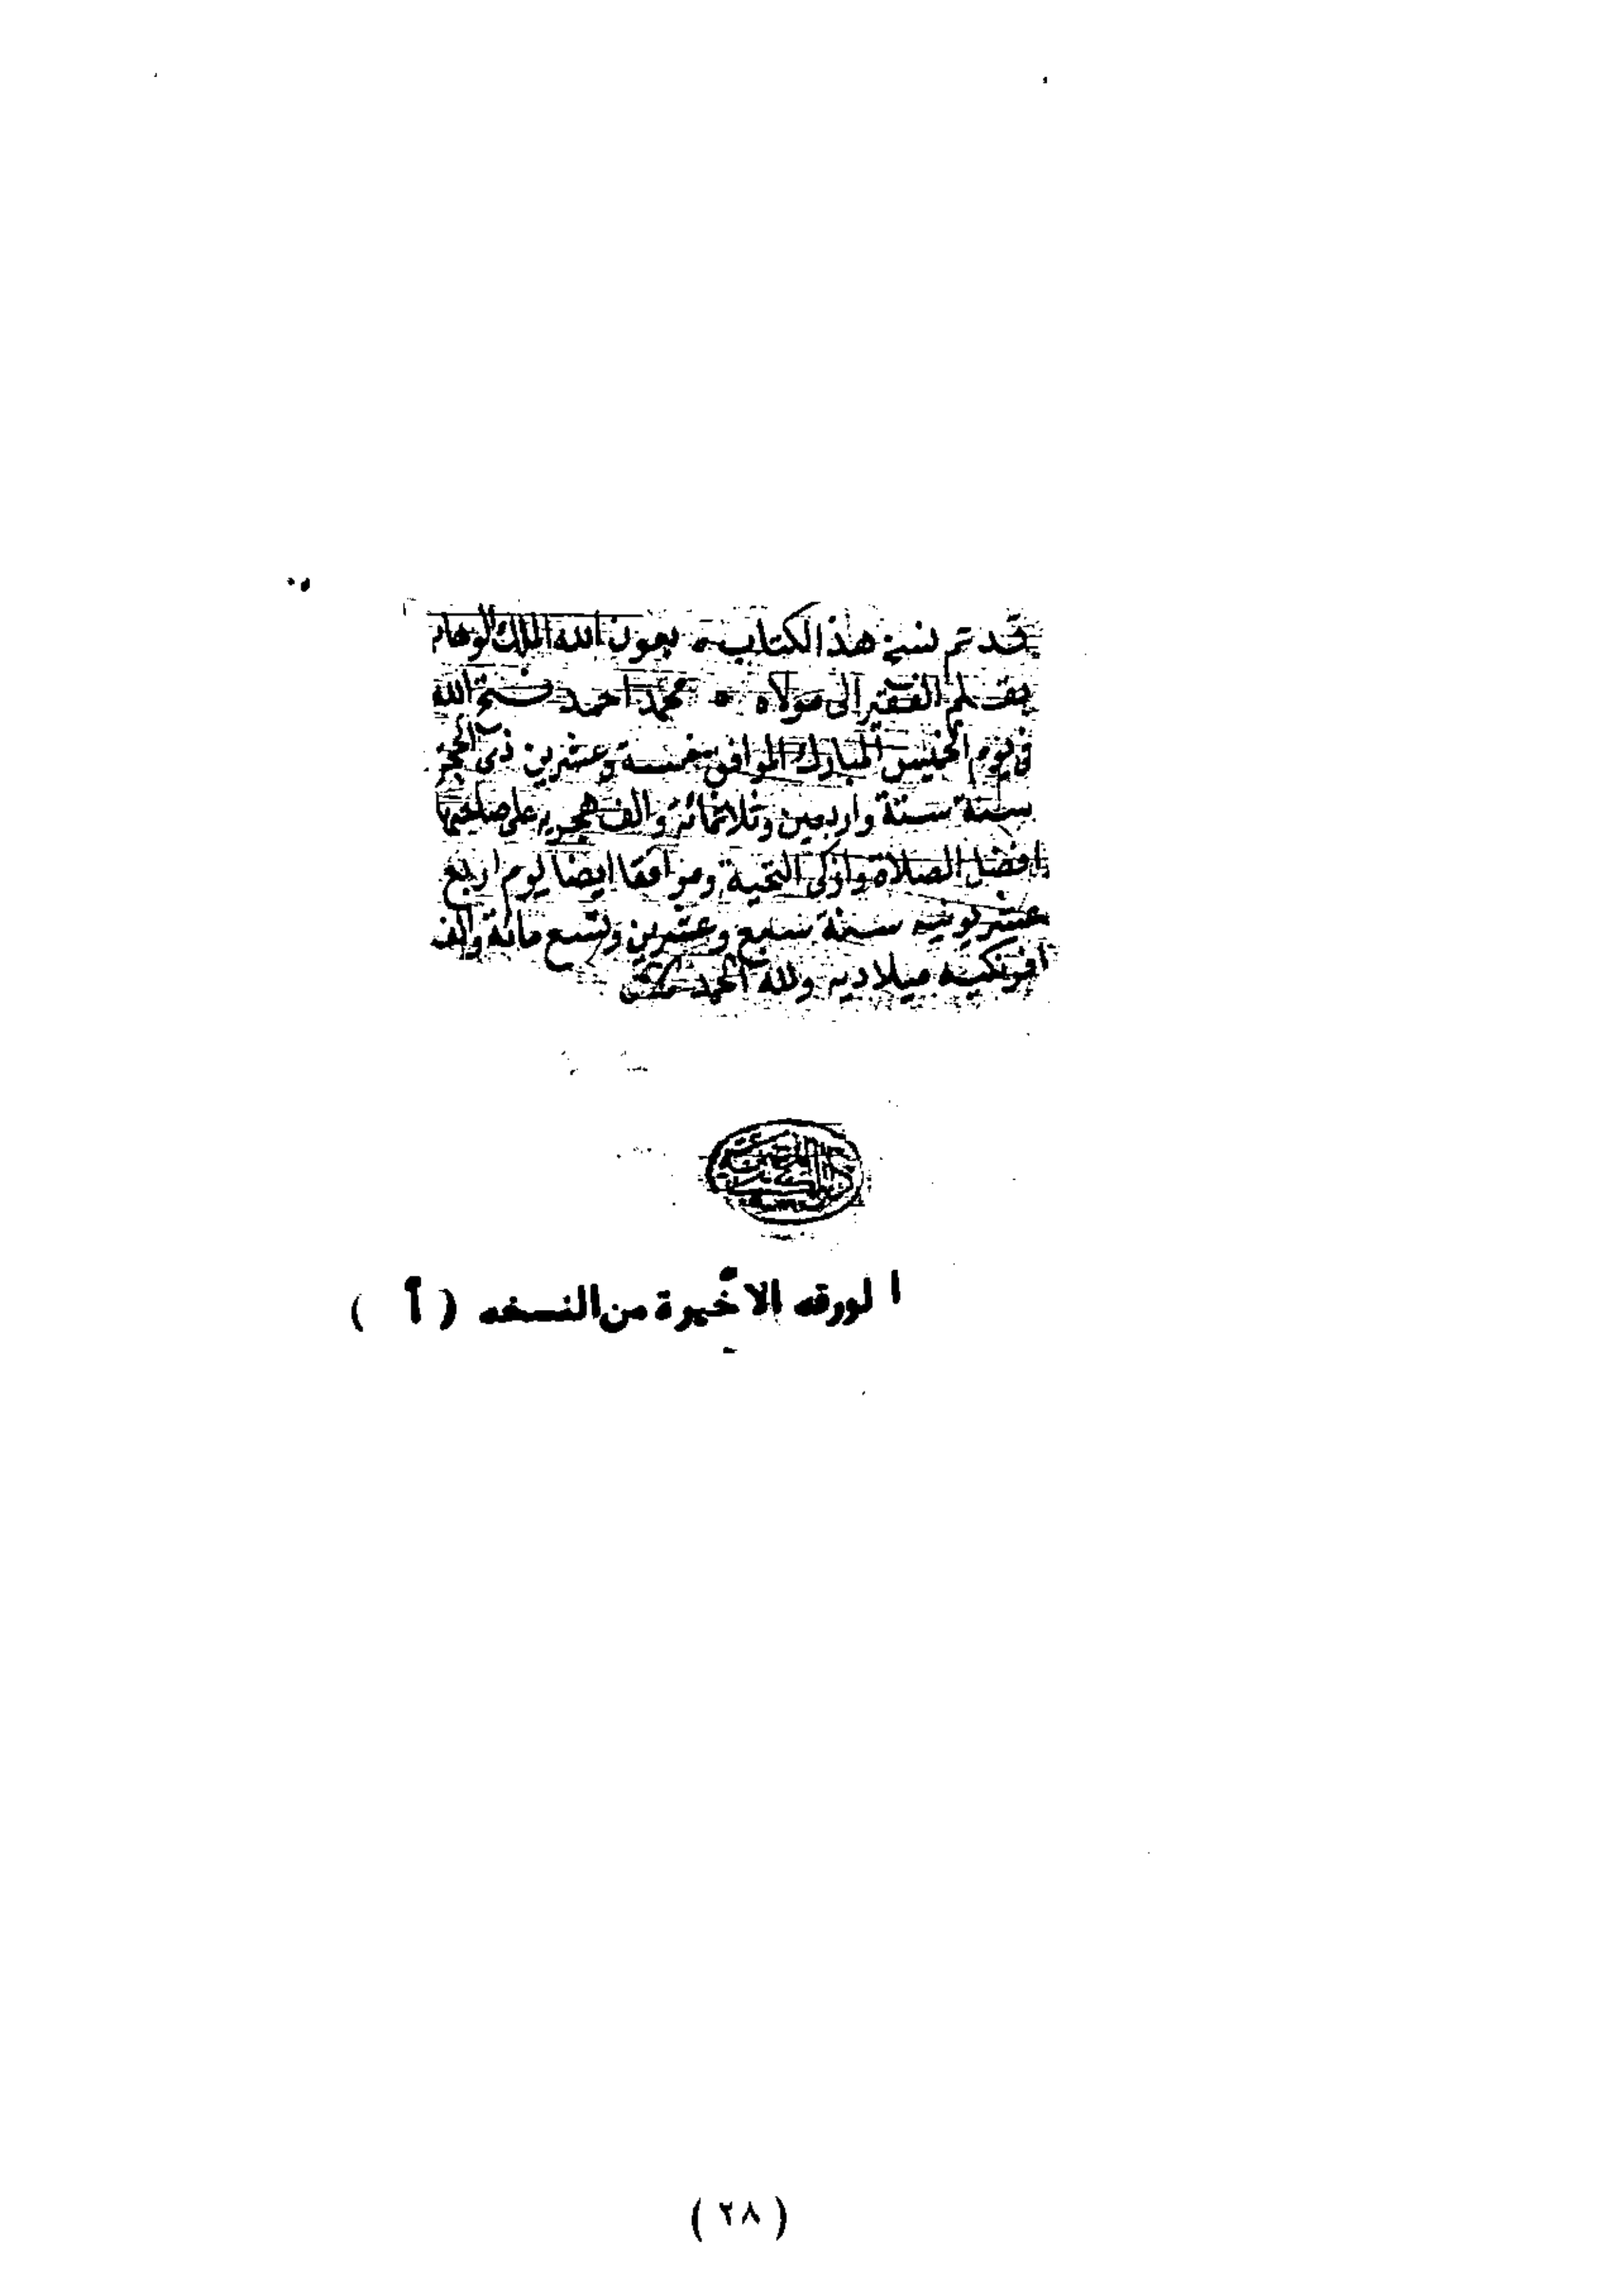 قد تم نسخ هذا الكتاب بعون الله الملك الوهاب
بقلم الفقير الى مولاه محمد احمد فتح الله
في يوم الخميس المبارك الموافق خمسة وعشرين ذي الحجة
سنة ستة واربعين وثلاثمائة والف هجريه على صاحبها
افضل الصلاة وازكى التحية وموافقا ايضا يوم اربع
عشر يونيه سنة سبع وعشرين وتسع مائة والف
افرنكيه ميلاديه ولله الحمد
الورقه الاخيرة من النسخه ( أ )
( ٢٨ )